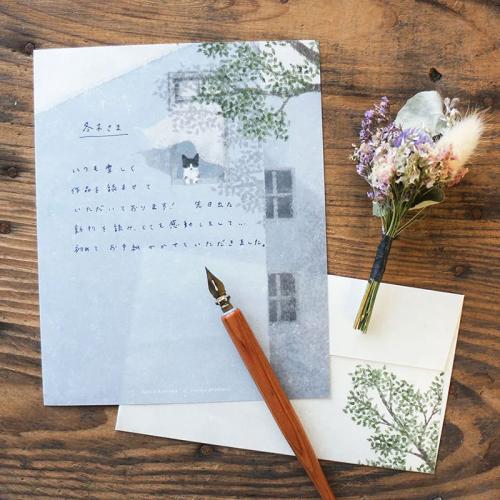 冬木さま
いつも楽しく
作品を読ませて
いただいております! 先日出た
新刊を読み、とても感動しまして…
初めてお手紙かかせていただきました。